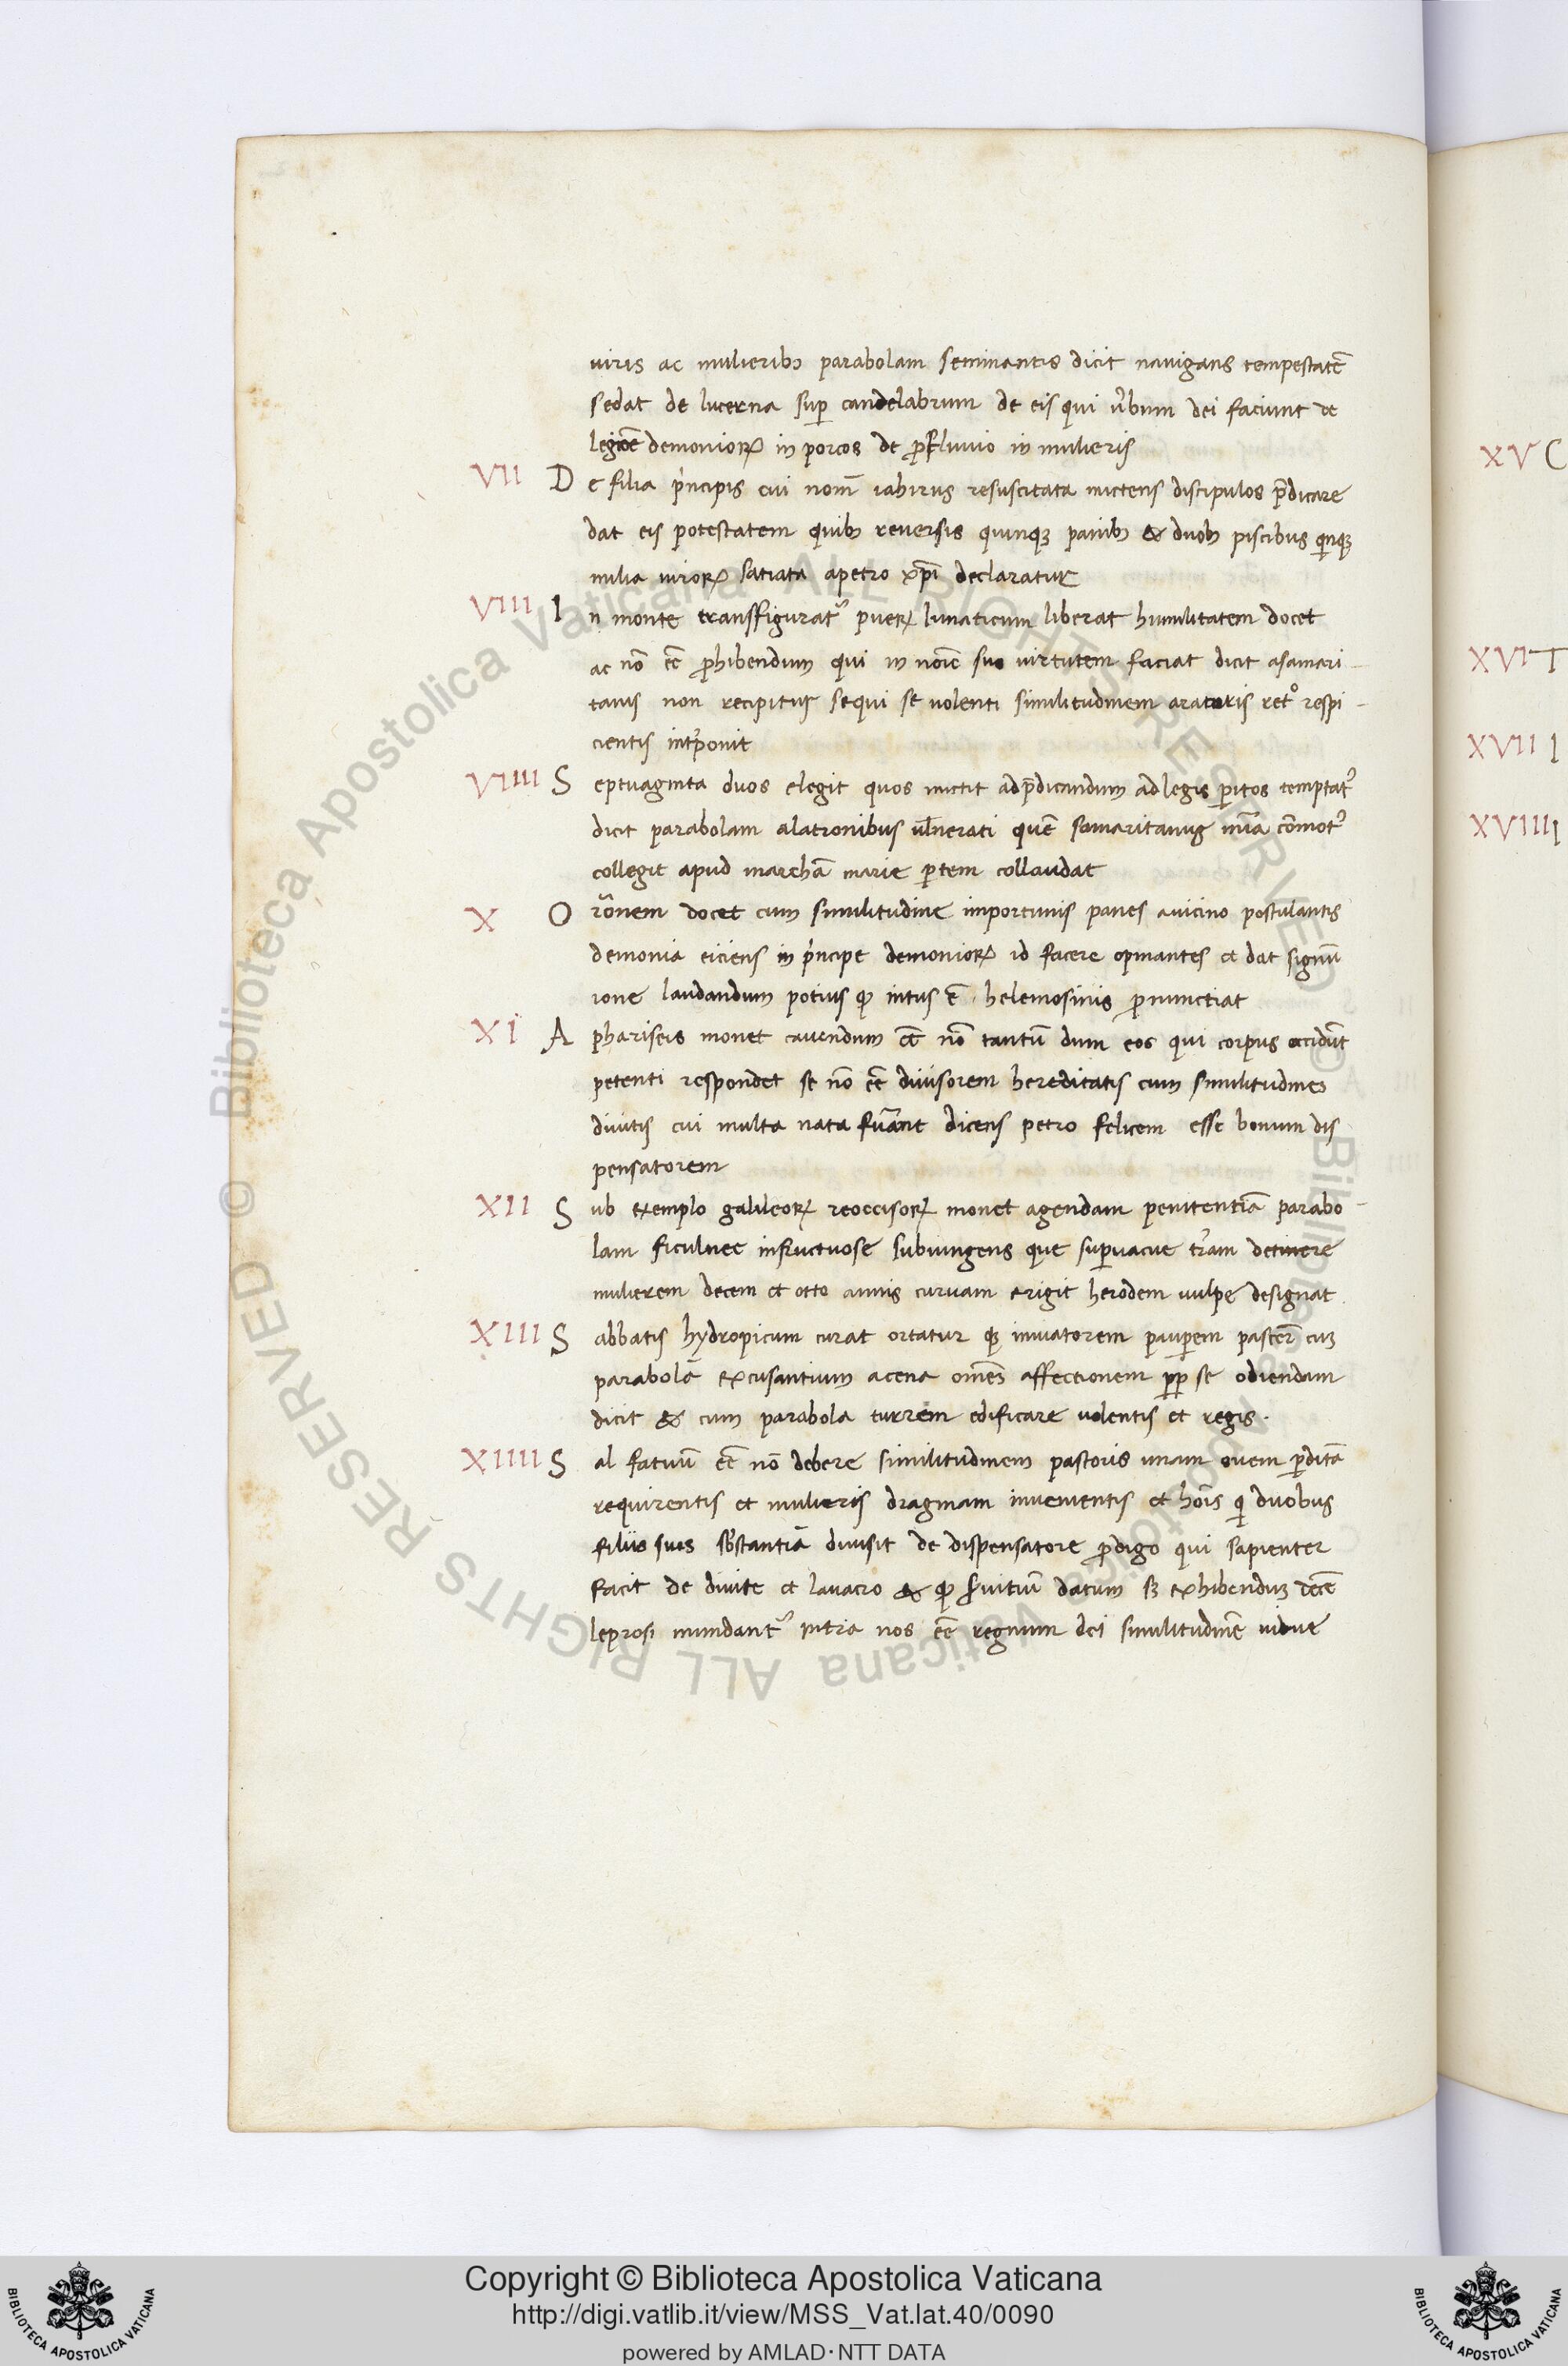 viris ac mulieribꝫ parabolam seminantis dicit nauigans tempestatē
sedat de lucerna sup̱ candelabrum de eis qui u̓bum dei faciunt de
legiōe demonioꝝ in porcos de ꝓfluuio in mulieris
VII D e filia pⁱncipis cui nom̄ iahirus resuscitata mictens discipulos p̄dicare
dat eis potestatem quibꝫ reuersis quinqꝫ panibꝫ & duobꝫ piscibus qⁱnqꝫ
milia uiroꝝ satiata apetro xp̄i declaratur
VIII I n monte transfigurat᷑ pueꝝ lunaticum liberat humilitatem docet
ac nō eē ꝓhibendum qui in noīe suo uirtutem faciat dicit asamari-
tanis non recipitur sequi se uolenti similitudinem aratoris retº respi-
cientis int̓ponit
VIIII S eptuaginta duos elegit quos mictit adp̄dicandum adlegis ꝑitos temptat᷑
dicit parabolam alatronibus uł̓nerati quē samaritanus mīa cōmot᷑
collegit apud marthā marie ꝑtem collaudat
X O rōnem docet cum similitudine importunis panes auicino postulantis
demonia eiciens in pⁱncipe demonioꝝ id facere opinantes et dat signū
ione laudandum potius qᵭ intus ē. helemosinis ꝓnunctiat
XI A phariseis monet cauendum eē nō tantū dum eos qui corpus occidūt
petenti respondet se nō eē diuisorem hereditatis cum similitudines
diuitis cui multa nata fu̓ant dicens petro felicem esse bonum dis
pensatorem
XII S ub exemplo galileoꝝ reoccisoꝝ monet agendam penitentiā parabo-
lam ficulnee infructuose subiungens que sup̱uacue tr̓am detinere
mulierem decem et otto annis curuam erigit herodem uulpe designat
XIII S abbatis hydropicum curat ortatur qꝫ inuiatorem paup̱em pascer̄ cuꝫ
parabolā excusantium acena om̄es affectionem ꝓp̱ se odiendam
dicit & cum parabola turrem edificare uolentis et regis.
XIIII S al fatuū eē nō debere similitudinem pastoris unam ouem ꝑditā
requirentis et mulieris dragmam inuenientis et hoīs qⁱ duobus
filiis suis sb̓stantiā diuisit de dispensatore ꝓdigo qui sapienter
facit de diuite et lauacro & qᵭ s̓uitiū datum sꝫ exhibenduꝫ decē
leprosi mundant᷑ intra nos eē regnum dei similitudinē uidue
XV C
XVI T
XVII I
XVIII I
© Biblioteca Apostolica Vaticana ALL RIGHTS RESERVED © Biblioteca Apostolica Vaticana ALL RIGHTS RESERVED
Copyright © Biblioteca Apostolica Vaticana
http://digi.vatlib.it/view/MSS_Vat.lat.40/0090
powered by AMLAD·NTT DATA
BIBLIOTECA APOSTOLICA VATICANA
BIBLIOTECA APOSTOLICA VATICANA